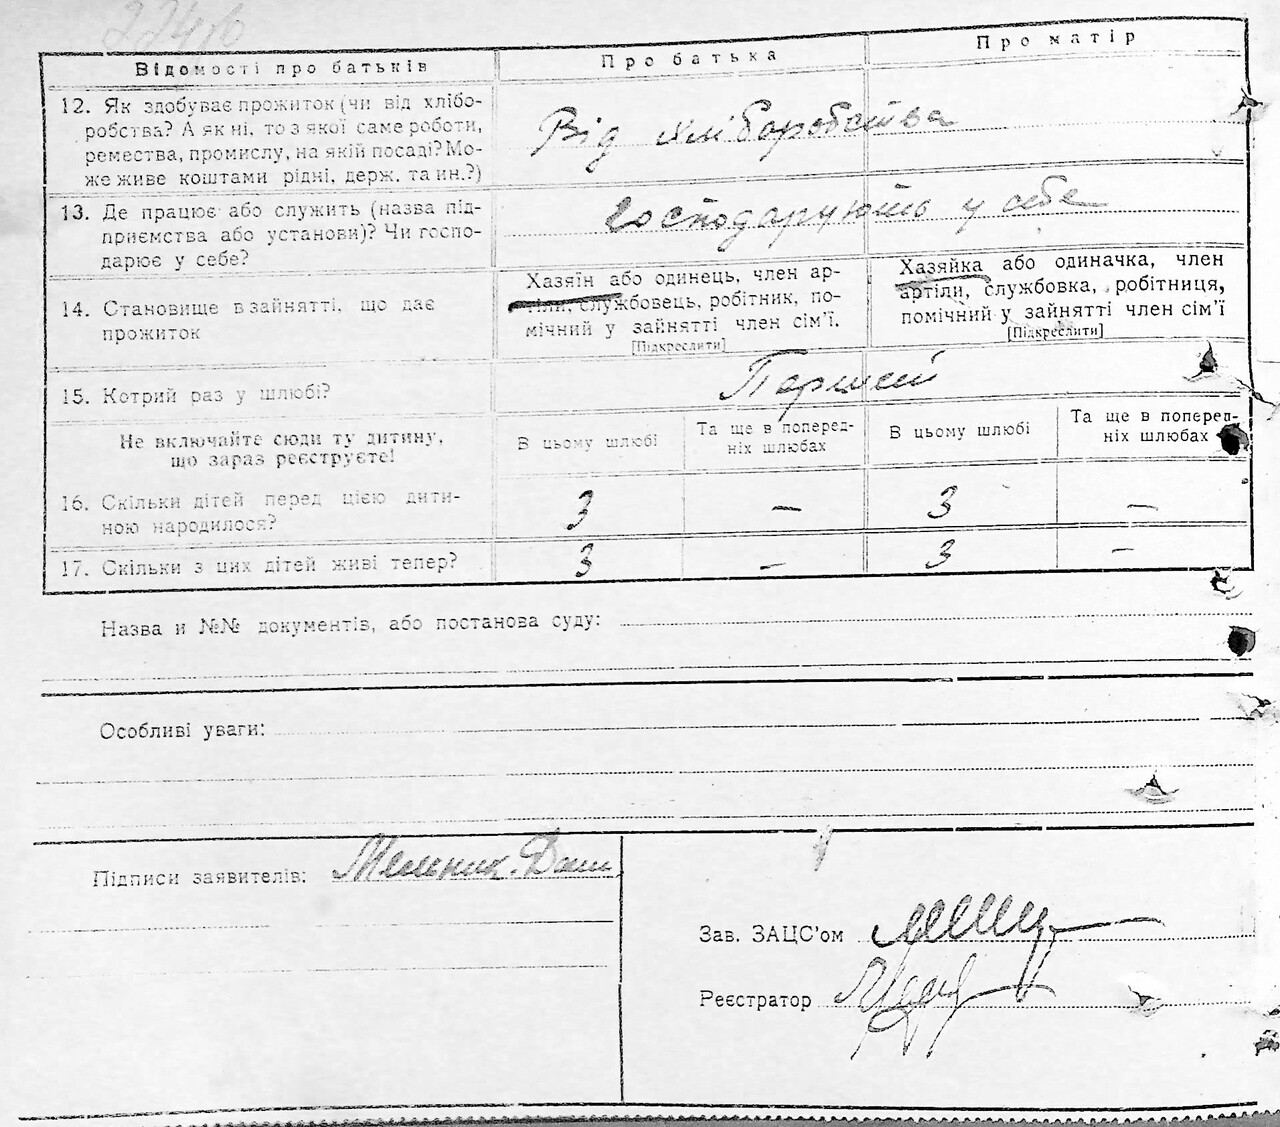 Відомості про батьків
Про батька
Про матір
12. Як здобуває прожиток (чи від хлібо-
робства? А як ні, то з якої саме роботи,
ремества, промислу, на якій посаді? Мо-
же живе коштами рідні, держ. та ин.?)
Від хліборобства
13. Де працює або служить (назва під-
приємства або установи)? Чи госпо-
дарює у себе?
Господарують у себе
14. Становище в зайнятті, що дає
прожиток
Хазяїн або одинець, член ар-
тіли, службовець, робітник, по-
мічний у зайнятті член сім’ї.
[Підкреслити]
Хазяйка або одиначка, член
артіли, службовка, робітниця,
помічний у зайнятті член сім’ї
[Підкреслити]
15. Котрий раз у шлюбі?
Перший
Не включайте сюди ту дитину,
що зараз реєструєте!
В цьому шлюбі
Та ще в поперед-
ніх шлюбах
В цьому шлюбі
Та ще в поперед-
ніх шлюбах
16. Скільки дітей перед цією дити-
ною народилося?
3 — 3 —
17. Скільки з цих дітей живі тепер?
3 — 3 —
Назва и №№ документів, або постанова суду:
Особливі уваги:
Підписи заявителів: Мельник
Зав. ЗАЦС’ом
Реєстратор